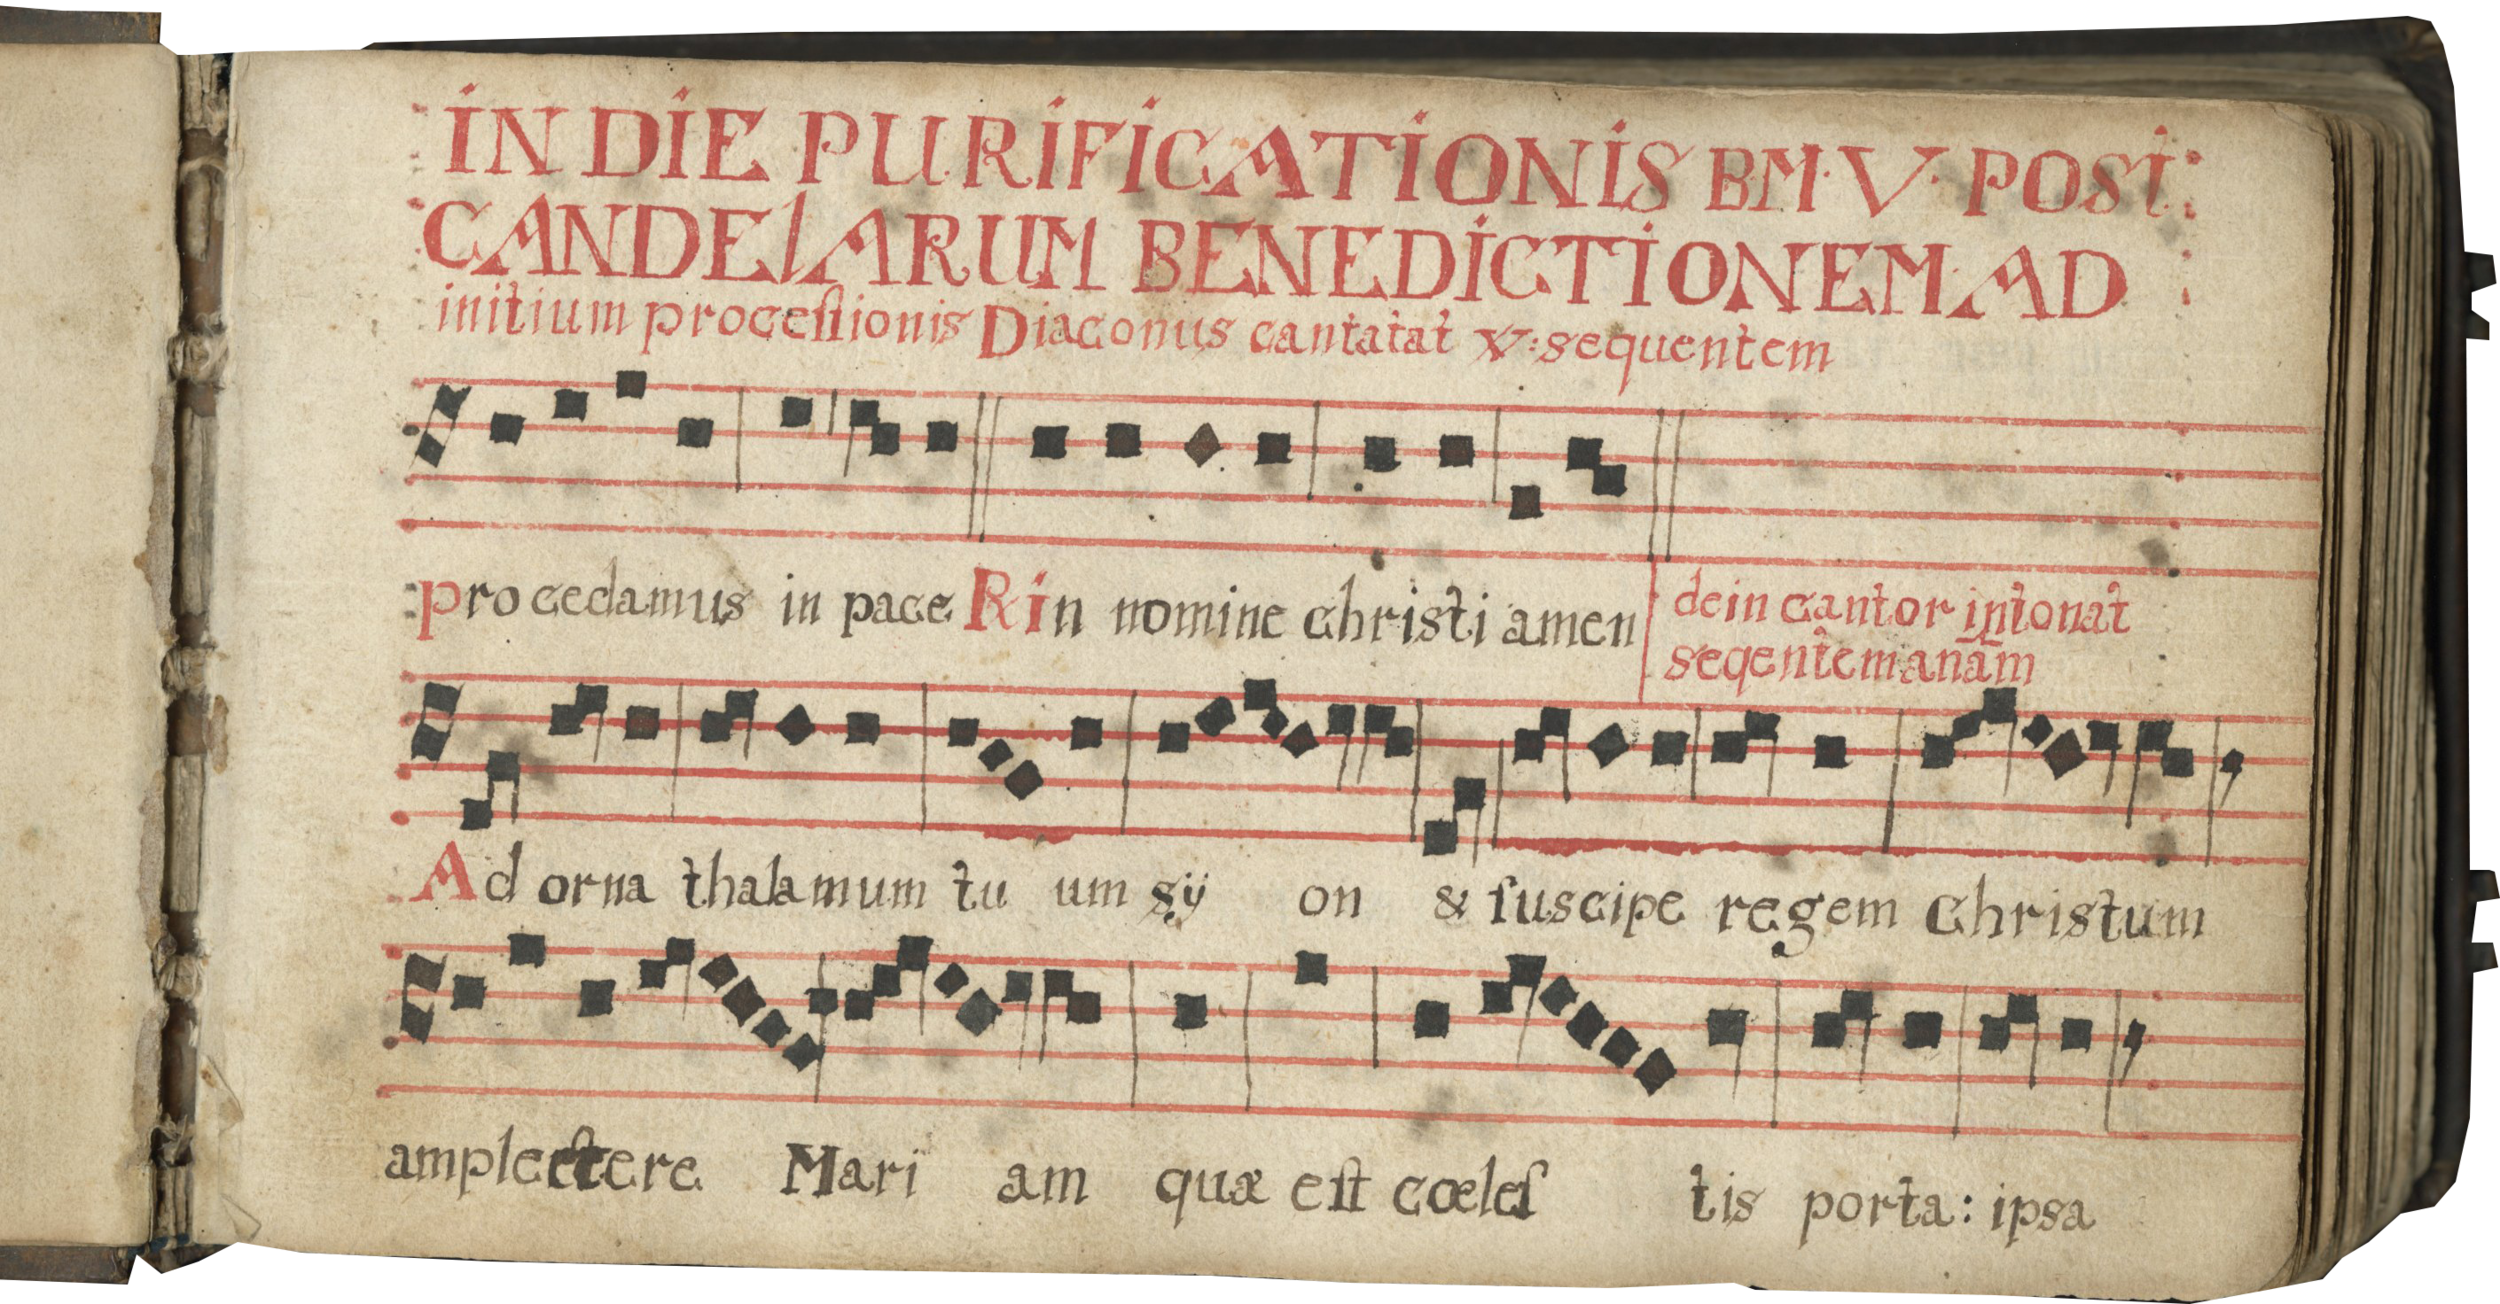 IN DIE PURIFICATIONIS B·M·V· POST
CANDELARUM BENEDICTIONEM AD
initium proceſsionis Diaconus cantatat V: sequentem
Procedamus in pace R in nomine christi amen
dein cantor intonat
seqentem anam
Ad orna thalamum tu um sÿ on & ſuscipe regem Christum
amplectere Mari am quæ eſt cœleſ tis porta: ipsa